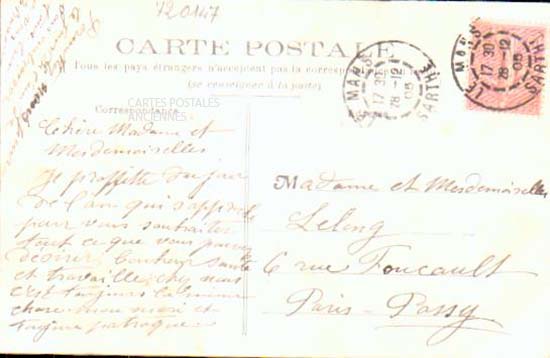 720147
CARTE POSTALE
Tous les pays étrangers n'acceptent pas la correspondance
(se renseigner à la poste)
Correspondance
CARTES POSTALES
ANCIENNES
LE MANS
17 30
28-12
05
SARTHE
LE MANS
17 30
28-12
05
SARTHE
Chère Madame et
Mesdemoiselles
Je proffitte du jour
de l'an qui s'approche
pour vous souhaiter
tout ce que vous pouvez
désirer, bonheur santé
et travaille, chez nous
c'est toujours la même
chose mon mari et
Madame et Mesdemoiselles
Lelong
6 rue Foucault
Paris-Passy